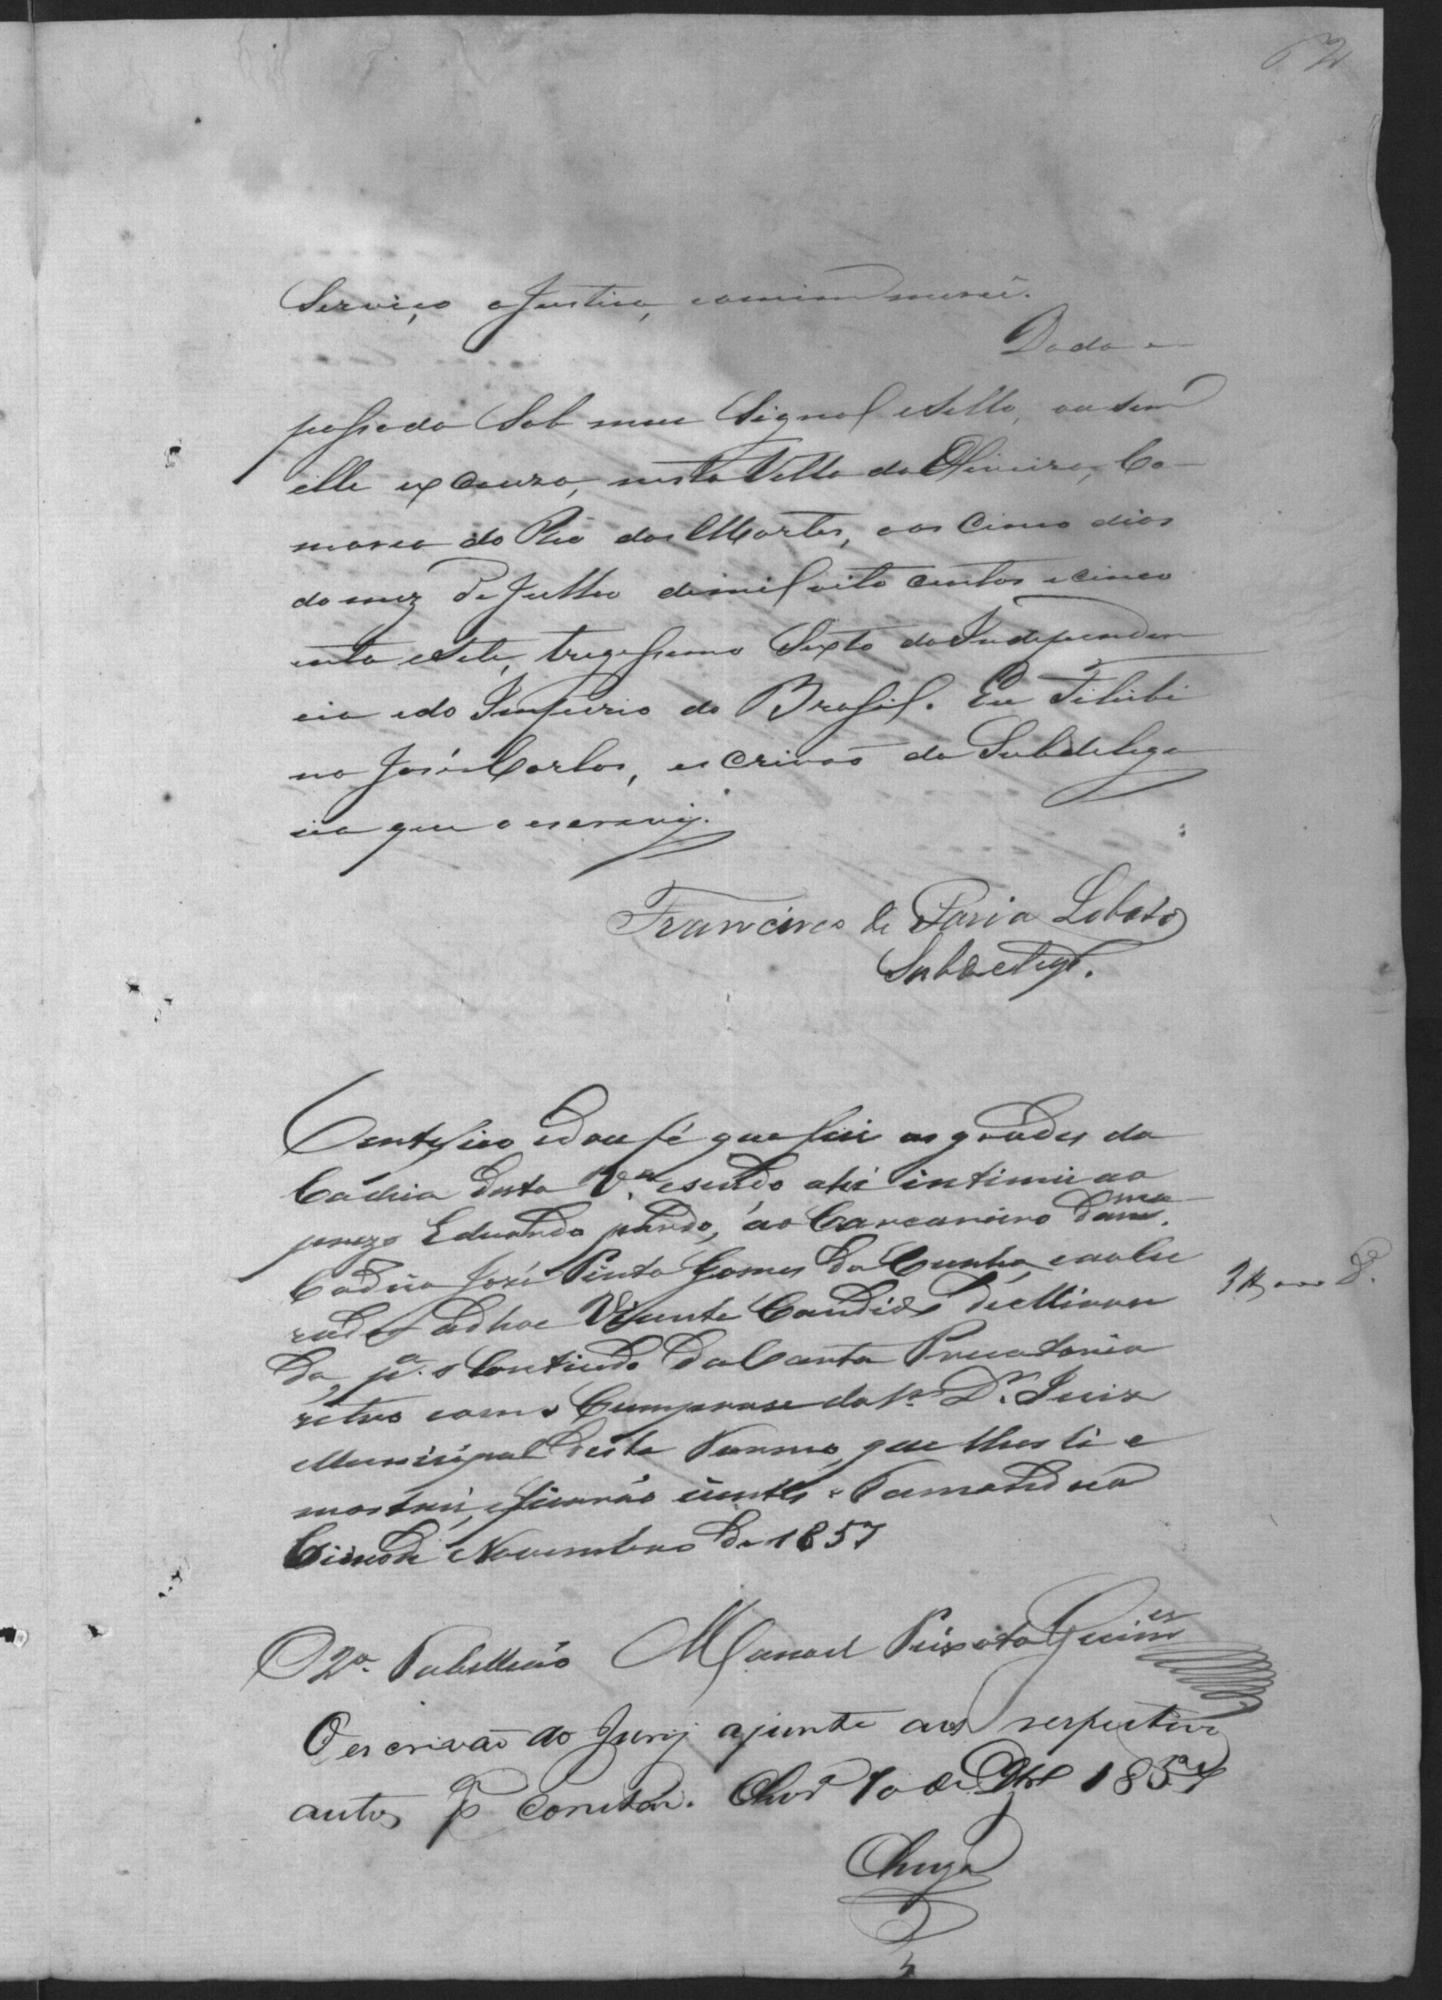 62
Serviço a Justiça, e a mim mercê.
Dada e
passada Sob meu Signal e Sello, ou sem
elle ex Causa, nesta Villa da Oliveira, Co-
marca do Rio das Mortes, aos Cinco dias
do mez de Julho de mil oito centos e cinco
enta e Sete, trigessimo Sexto da Independen
cia e do Imperio do Brasil. Eu Filisbi
no José Carlos, escrivão da Subdelega
cia que o escrevy.
Francisco de Faria Lobato
Subdelegd.
Certefico e dou fé que fui as grades da
Cadeia desta Vª. e sendo ahi intimei ao
prezo Eduardo pardo, ao Carcereiro da mma.
Cadeia José Pinto Gomes da Cunha, e ao Cu
rador ad hoc Vicente Candido de Miran
da, pª. o Contiudo da Carta Precatoria
retro com o Cumprase do Sr. Dr. Juiz
Municipal deste Termo, que lhes li e
mostrei, e ficarão scientes. Tamanduá
Cinco de Novembro de 1857
O 2º. Tabellião Manoel Peixoto Guimes
O escrivão do Jury ajunte aos respectivos
autos pª constar. 10 de 1857